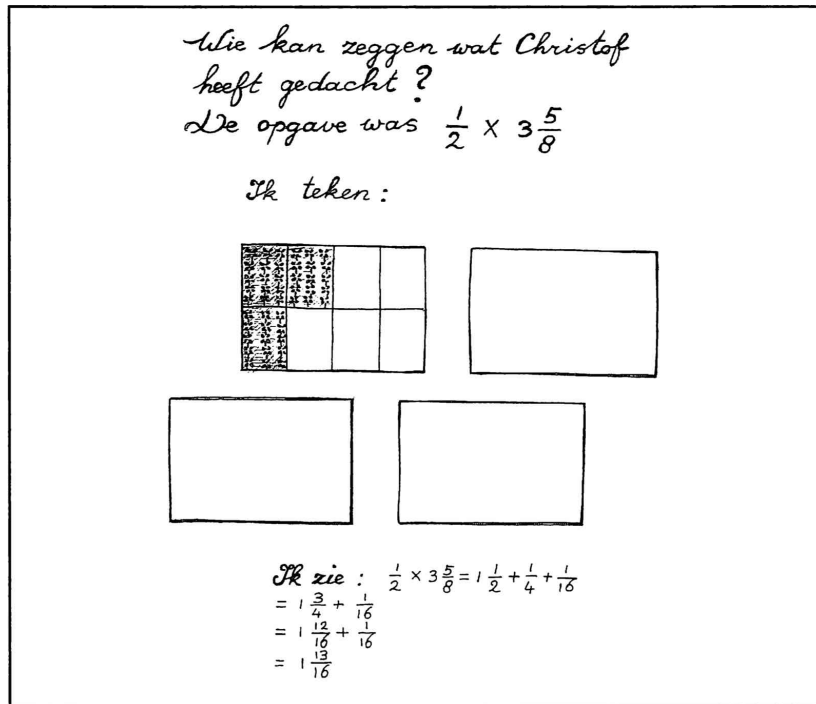 Wie kan zeggen wat Christof
heeft gedacht?
De opgave was 1/2 × 3 5/8
Ik teken:
Ik zie: 1/2 × 3 5/8 = 1 1/2 + 1/4 + 1/16
= 1 3/4 + 1/16
= 1 12/16 + 1/16
= 1 13/16